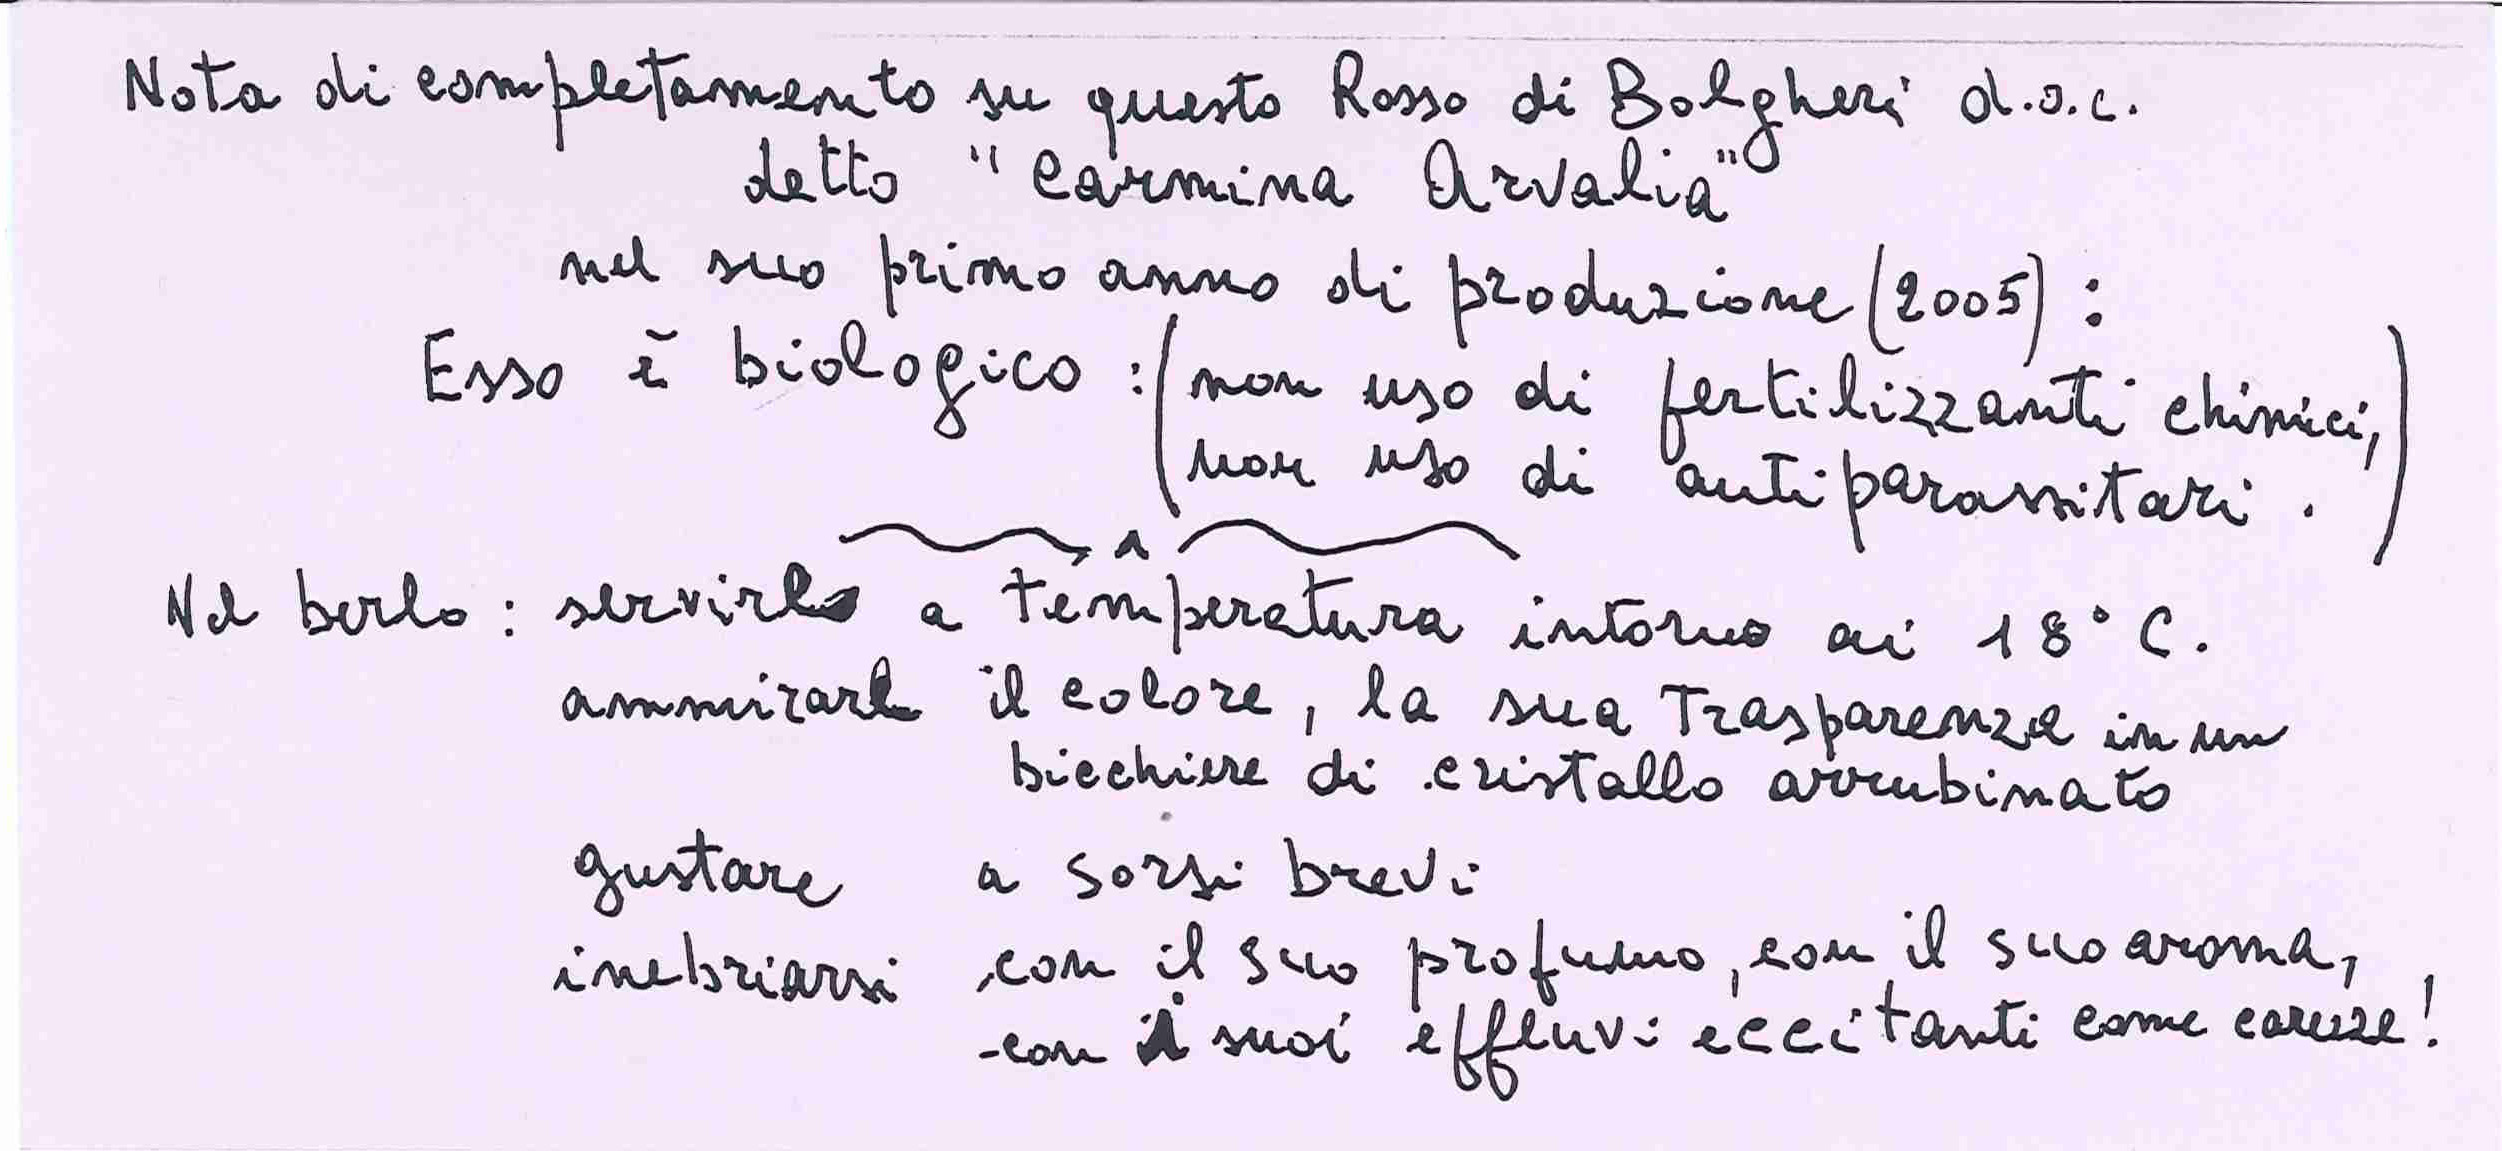 Nota di completamento su questo Rosso di Bolgheri d.o.c.
detto "Carmina Arvalia"
nel suo primo anno di produzione (2005):
Esso è biologico: (non uso di fertilizzanti chimici,
non uso di antiparassitari.)
Nel berlo: servirlo a temperatura intorno ai 18° C.
ammirare il colore, la sua trasparenza in un
bicchiere di cristallo arrubinato
gustare a sorsi brevi
inebriarsi con il suo profumo, con il suo aroma,
-con i suoi effluvi eccitanti come carezze!